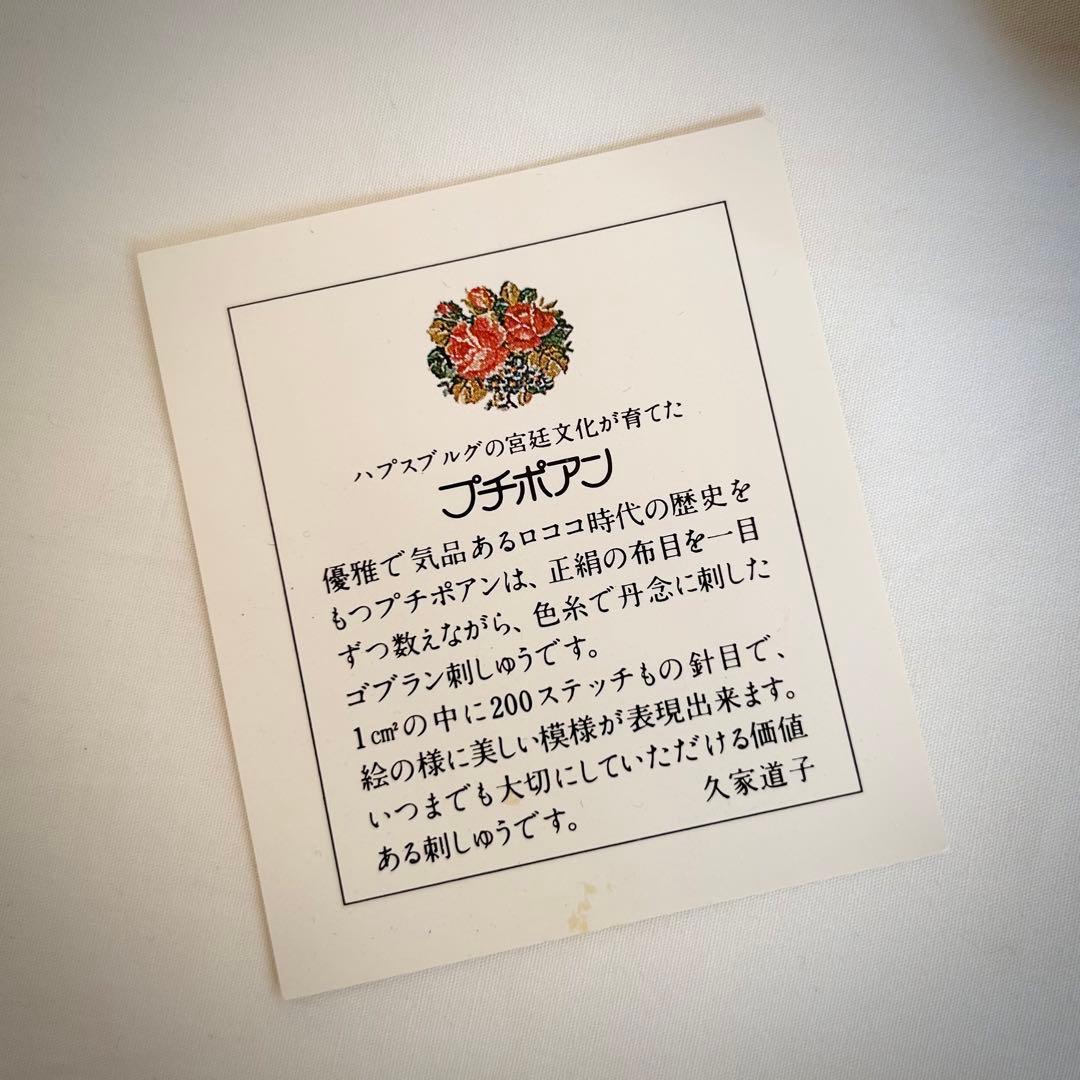 ハプスブルグの宮廷文化が育てた
プチポアン
優雅で気品あるロココ時代の歴史を
もつプチポアンは、正絹の布目を一目
ずつ数えながら、色糸で丹念に刺した
ゴブラン刺しゅうです。
1cm²の中に200ステッチもの針目で、
絵の様に美しい模様が表現出来ます。
いつまでも大切にしていただける価値
ある刺しゅうです。
久家道子